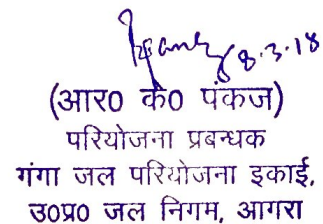 8.3.18
(आर0 के0 पंकज)
परियोजना प्रबन्धक
गंगा जल परियोजना इकाई,
उ0प्र0 जल निगम, आगरा